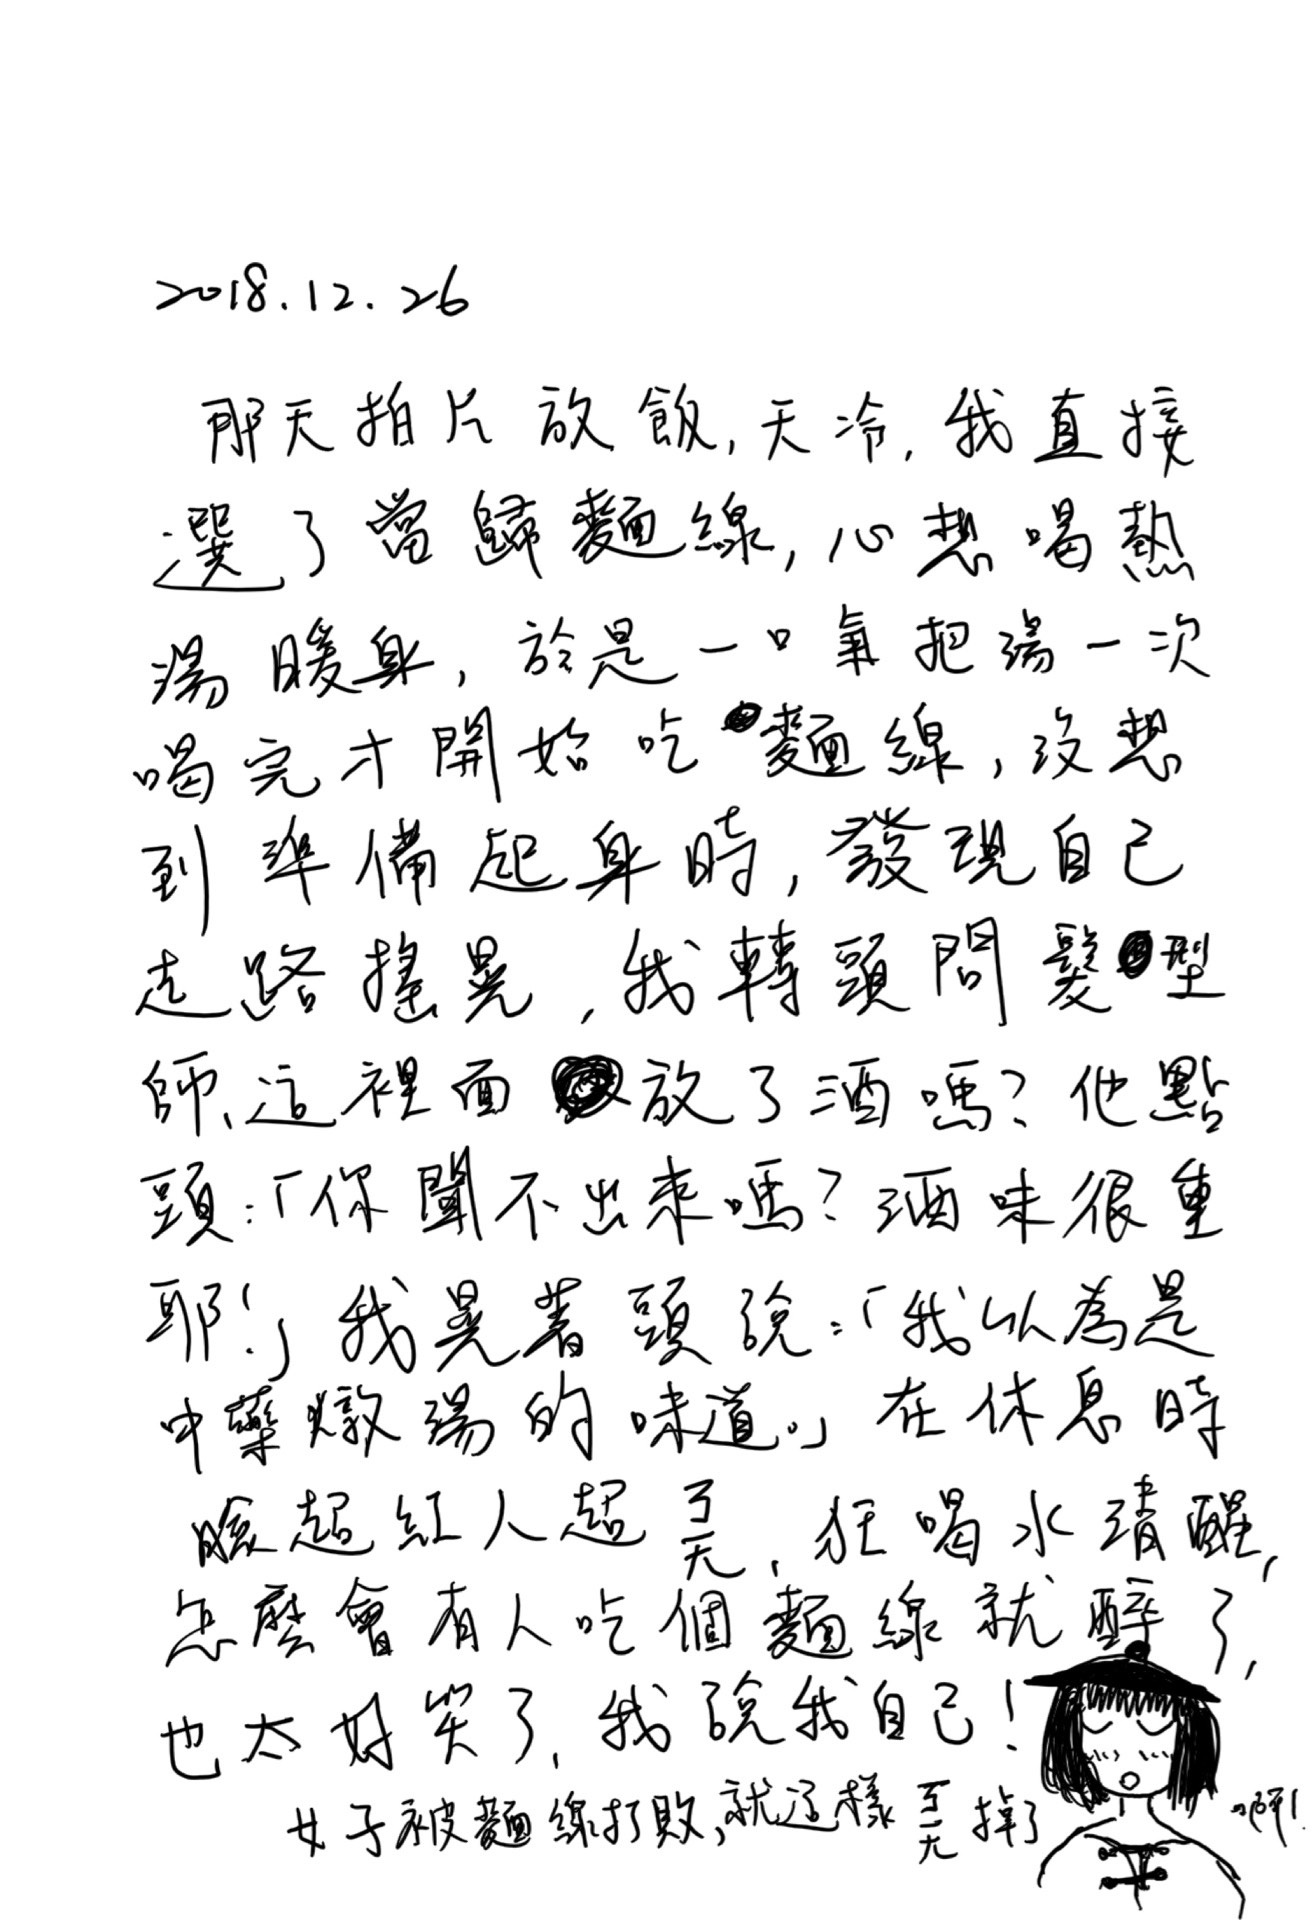 2018.12.26
那天拍片放飯,天冷,我直接
選了當歸麵線,心想喝熱
湯暖身,於是一口氣把湯一次
喝完才開始吃麵線,沒想
到準備起身時,發現自己
走路搖晃,我轉頭問髮型
師、這裡面放了酒嗎?他點
頭:「你聞不出來嗎?酒味很重
耶!」我晃著頭說:「我以為是
中藥燉湯的味道。」在休息時
臉超紅人超ㄎㄧㄤ,狂喝水清醒,
怎麼會有人吃個麵線就醉了,
也太好笑了,我說我自己!
女子被麵線打敗,就這樣ㄎㄧㄤ掉了
啊!